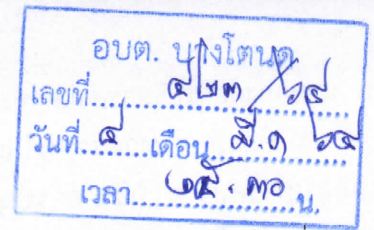 อบต. บางโตนด
เลขที่ ๔๒๓/๖๔
วันที่ ๔ เดือน มี.ค ๖๔
เวลา ๑๕.๓๐ น.